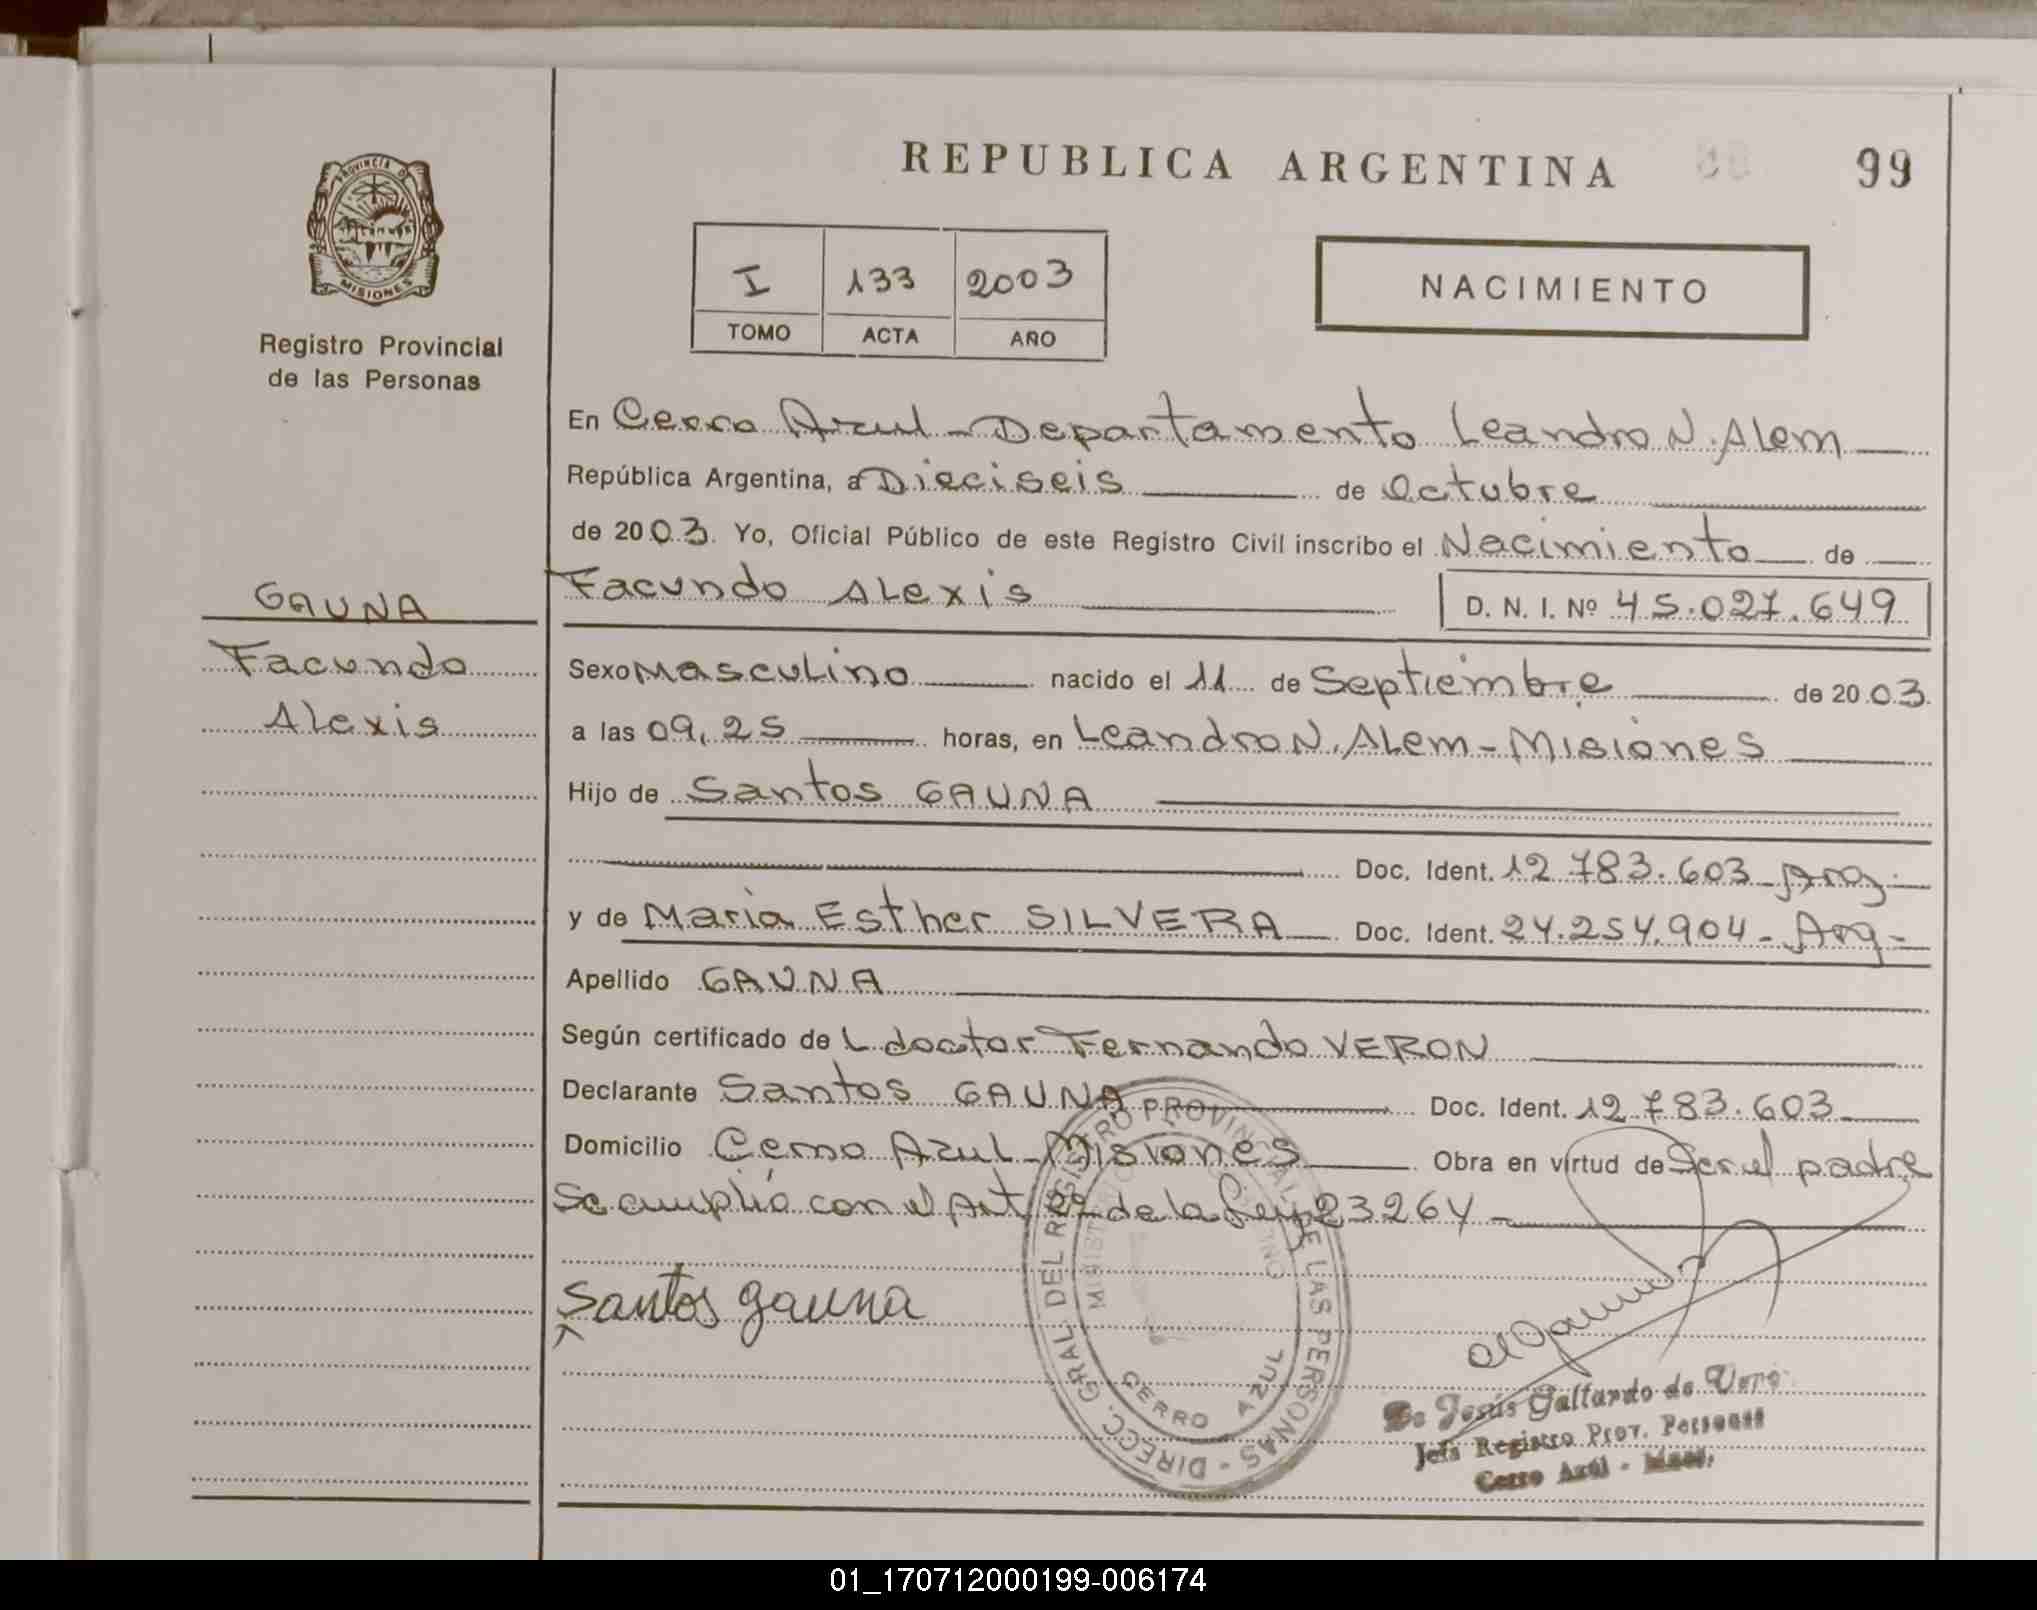 REPUBLICA ARGENTINA 99
PROVINCIA DE
MISIONES
Registro Provincial
de las Personas
I 133 2003
TOMO ACTA AÑO
NACIMIENTO
En Cerro Azul - Departamento Leandro N. Alem
República Argentina, a Dieciseis de Octubre
de 2003. Yo, Oficial Público de este Registro Civil inscribo el Nacimiento de
Facundo Alexis D. N. I. Nº 45.027.649
GAUNA
Facundo
Alexis
Sexo Masculino nacido el 11 de Septiembre de 2003.
a las 09,25 horas, en Leandro N. Alem - Misiones
Hijo de Santos GAUNA
Doc. Ident. 12.783.603 - Arg -
y de Maria Esther SILVERA Doc. Ident. 24.254.904 - Arg -
Apellido GAUNA
Según certificado del doctor Fernando VERON
Declarante Santos GAUNA Doc. Ident. 12.783.603
Domicilio Cerro Azul - Misiones Obra en virtud de Ser el padre
Se cumplió con el Art 2º de la Ley 23264 -
Santos gauna
DIRECC. GRAL. DEL REGISTRO PROVINCIAL DE LAS PERSONAS -
CERRO AZUL
de Jesús Gallardo de Vera
Jefa Registro Prov. Personas
Cerro Azul - Mnes.
01_170712000199-006174